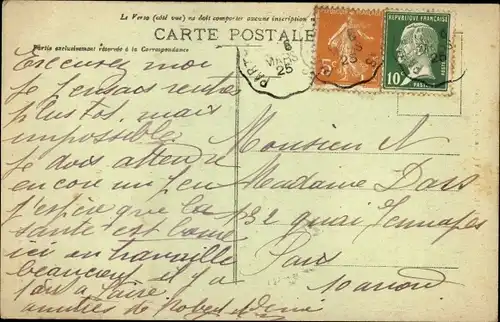 Le Verso (côté vue) ne doit comporter aucune inscription
CARTE POSTALE
Partie exclusivement réservée à la Correspondance
RÉPUBLIQUE FRANÇAISE
5c
10c
6
MARS
25
Excusez moi
Je pensais rentrer
plus tot, mais
impossible.
Je dois attendre
encore un peu
j'espère que la
santé est bonne
ici on travaille
beaucoup il y a
à faire.
amitiés de Robert
Monsieur
Madame Dass
132 quai Jemmapes
Paris